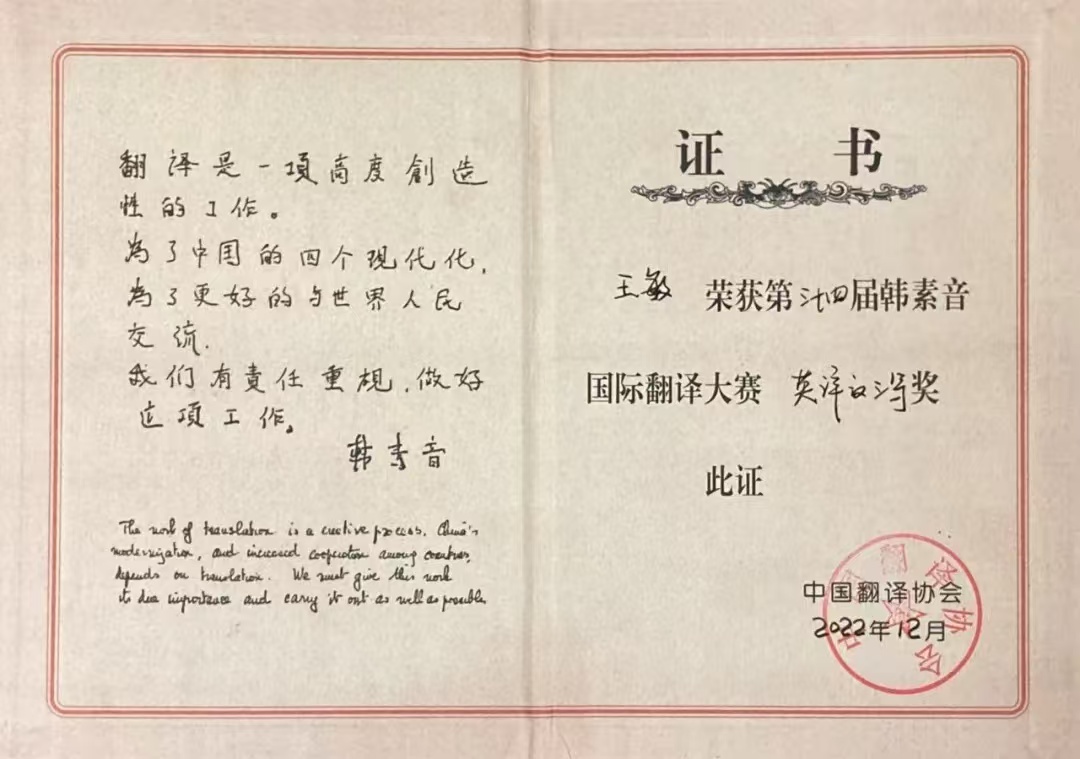 翻译是一項高度創造
性的工作。
為了中国的四个现代化,
為了更好的与世界人民
交流.
我们有責任重視,做好
这項工作。
韩素音
The work of translation is a creative process. China's
modernization, and increased cooperation among countries,
depends on translation. We must give this work
its due importance and carry it out as well as possible
证书
王敏 荣获第卅四届韩素音
国际翻译大赛 英译 奖
此证
中国翻译协会
2022年12月
中国翻译协会